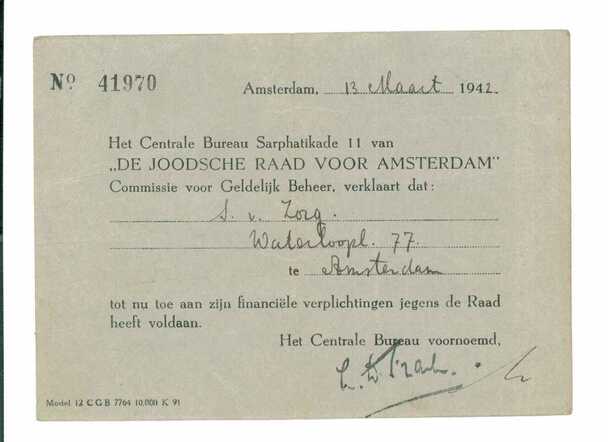 Nº 41970
Amsterdam, 13 Maart 1942.
Het Centrale Bureau Sarphatikade 11 van
„DE JOODSCHE RAAD VOOR AMSTERDAM"
Commissie voor Geldelijk Beheer, verklaart dat:
S. v. Zorg.
Waterloopl. 77.
te Amsterdam
tot nu toe aan zijn financiële verplichtingen jegens de Raad
heeft voldaan.
Het Centrale Bureau voornoemd,
Model 12 C G B 7764 10.000 K 91